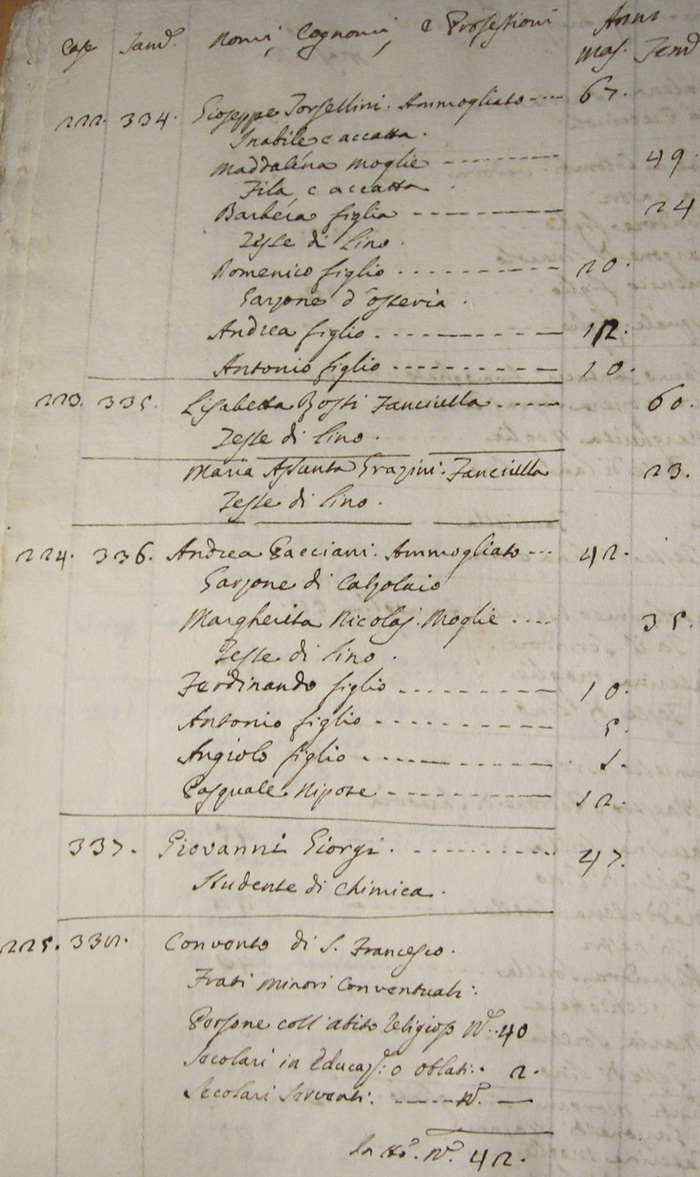 Anni
Case Famd. Nomi, Cognomi, e Professioni Mas. Femd
222. 334. Gioseppe Torsellini. Ammogliato --- 67.
Inabile e accatta.
Maddalena Moglie - - - - 49.
Fila, e accatta.
Barbera figlia - - - - 24
Tesse di lino.
Domenico figlio - - - - 20.
Garzone d'Osteria.
Andrea figlio. - - - - 12.
Antonio figlio - - - - 10.
223. 335. Lisabetta Bosti Fanciulla. - - - 60.
Tesse di lino.
Maria Assunta Grazini. Fanciulla 23.
Tesse di lino.
224. 336. Andrea Pacciani. Ammogliato --- 42.
Garzone di Calzolaio
Margherita Nicolaj. Moglie .... 35.
Tesse di lino.
Ferdinando figlio - - - - 10.
Antonio figlio - - - - 5.
Angiolo figlio - - - - 1.
Pasquale Nipote - - - - 12.
337. Giovanni Giorgi. - - - - 47.
Studente di Chimica.
225. 338. Convento di S. Francesco.
Frati Minori Conventuali:
Persone coll'abito religioso N.º 40
Secolari in Educaz: o oblati. 2.
Secolari Serventi. - - - N.º —
In tto. N.º 42.